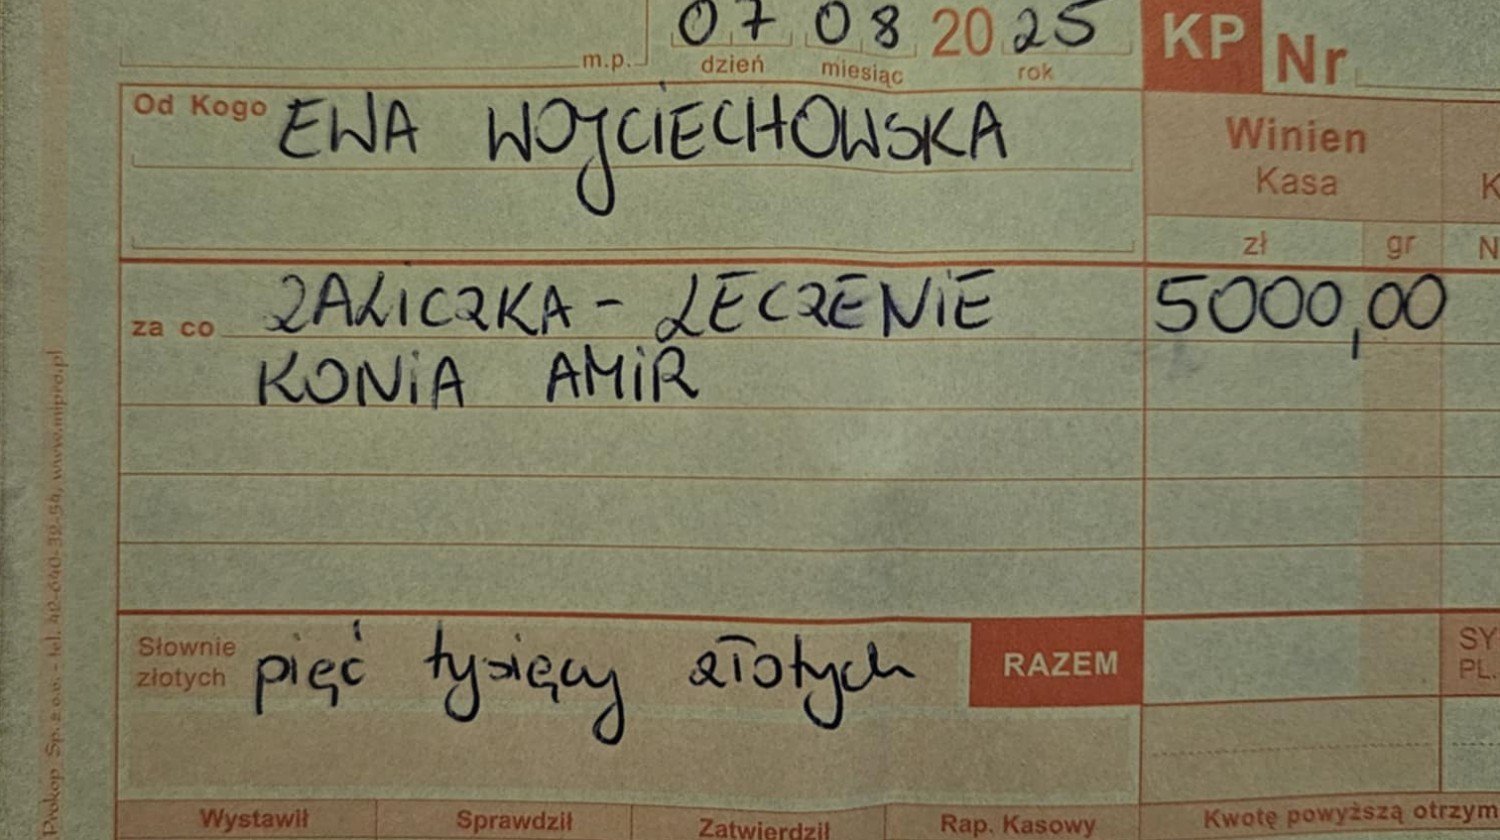 07 08 2025 KP Nr
m.p. dzień miesiąc rok
Od Kogo EWA WOJCIECHOWSKA
Winien
Kasa K
zł gr N
za co ZALICZKA - LECZENIE 5000,00
KONIA AMIR
Słownie złotych pięć tysięcy złotych RAZEM SY PL.
Wystawił Sprawdził Zatwierdził Rap. Kasowy Kwotę powyższą otrzym
Prokop Sp. z o.o. - tel. 42-640-39-54, www.mipro.pl